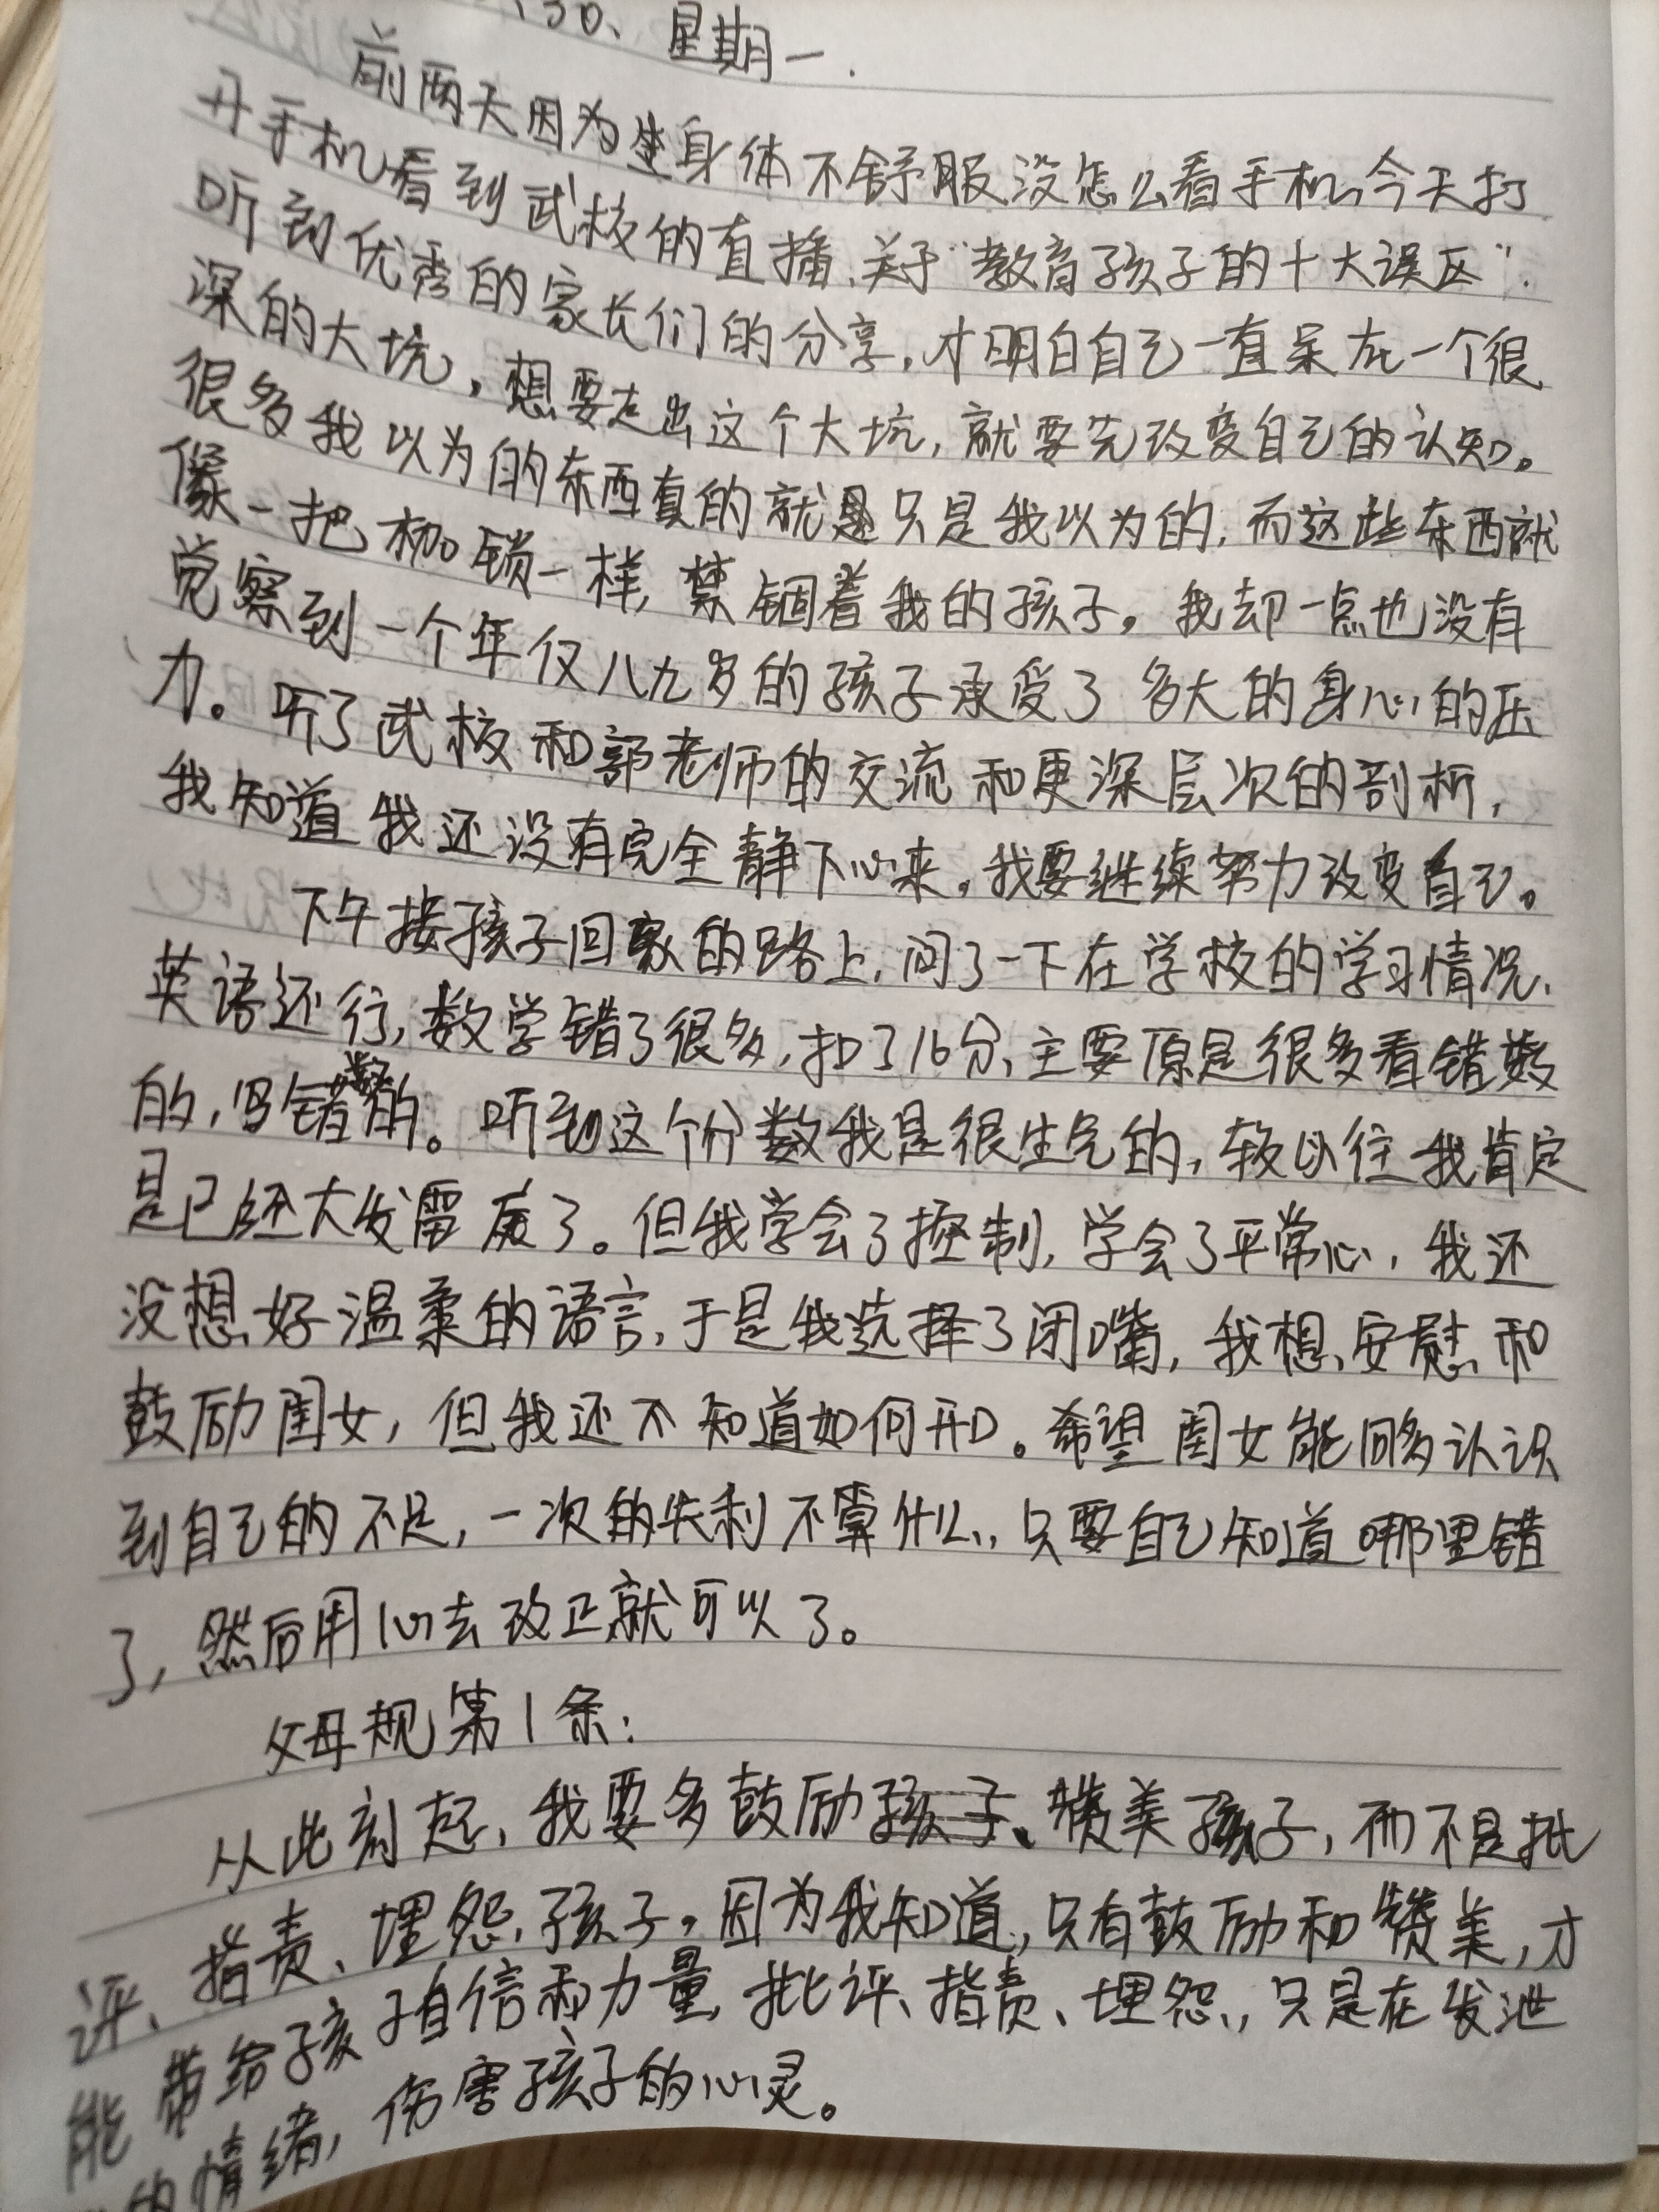 30、星期一.
前两天因为身体不舒服没怎么看手机,今天打
开手机看到武校的直播、关于“教育孩子的十大误区”.
听到优秀的家长们的分享,才明白自己一直呆在一个很
深的大坑,想要走出这个大坑,就要先改变自己的认知。
很多我以为的东西真的就是只是我以为的,而这些东西就
像一把枷锁一样,禁锢着我的孩子。我却一点也没有
觉察到一个年仅八九岁的孩子承受了多大的身心的压
力。听了武校和郭老师的交流和更深层次的剖析,
我知道我还没有完全静下心来。我要继续努力改变自己。
下午接孩子回家的路上,问了一下在学校的学习情况、
英语还行,数学错了很多,扣了16分、主要原是很多看错数
的,写错数的。听到这个分数我是很生气的,较以往我肯定
是已经大发雷霆了。但我学会了控制,学会了平常心,我还
没想好温柔的语言,于是我选择了闭嘴,我想安慰和
鼓励闺女,但我还不知道如何开口。希望闺女能够认识
到自己的不足,一次的失利不算什么,只要自己知道哪里错
了,然后用心去改正就可以了。
父母规第1条:
从此刻起,我要多鼓励孩子、赞美孩子,而不是批
评、指责、埋怨孩子。因为我知道,只有鼓励和赞美,才
能带给孩子自信和力量,批评、指责、埋怨,只是在发泄
的情绪,伤害孩子的心灵。